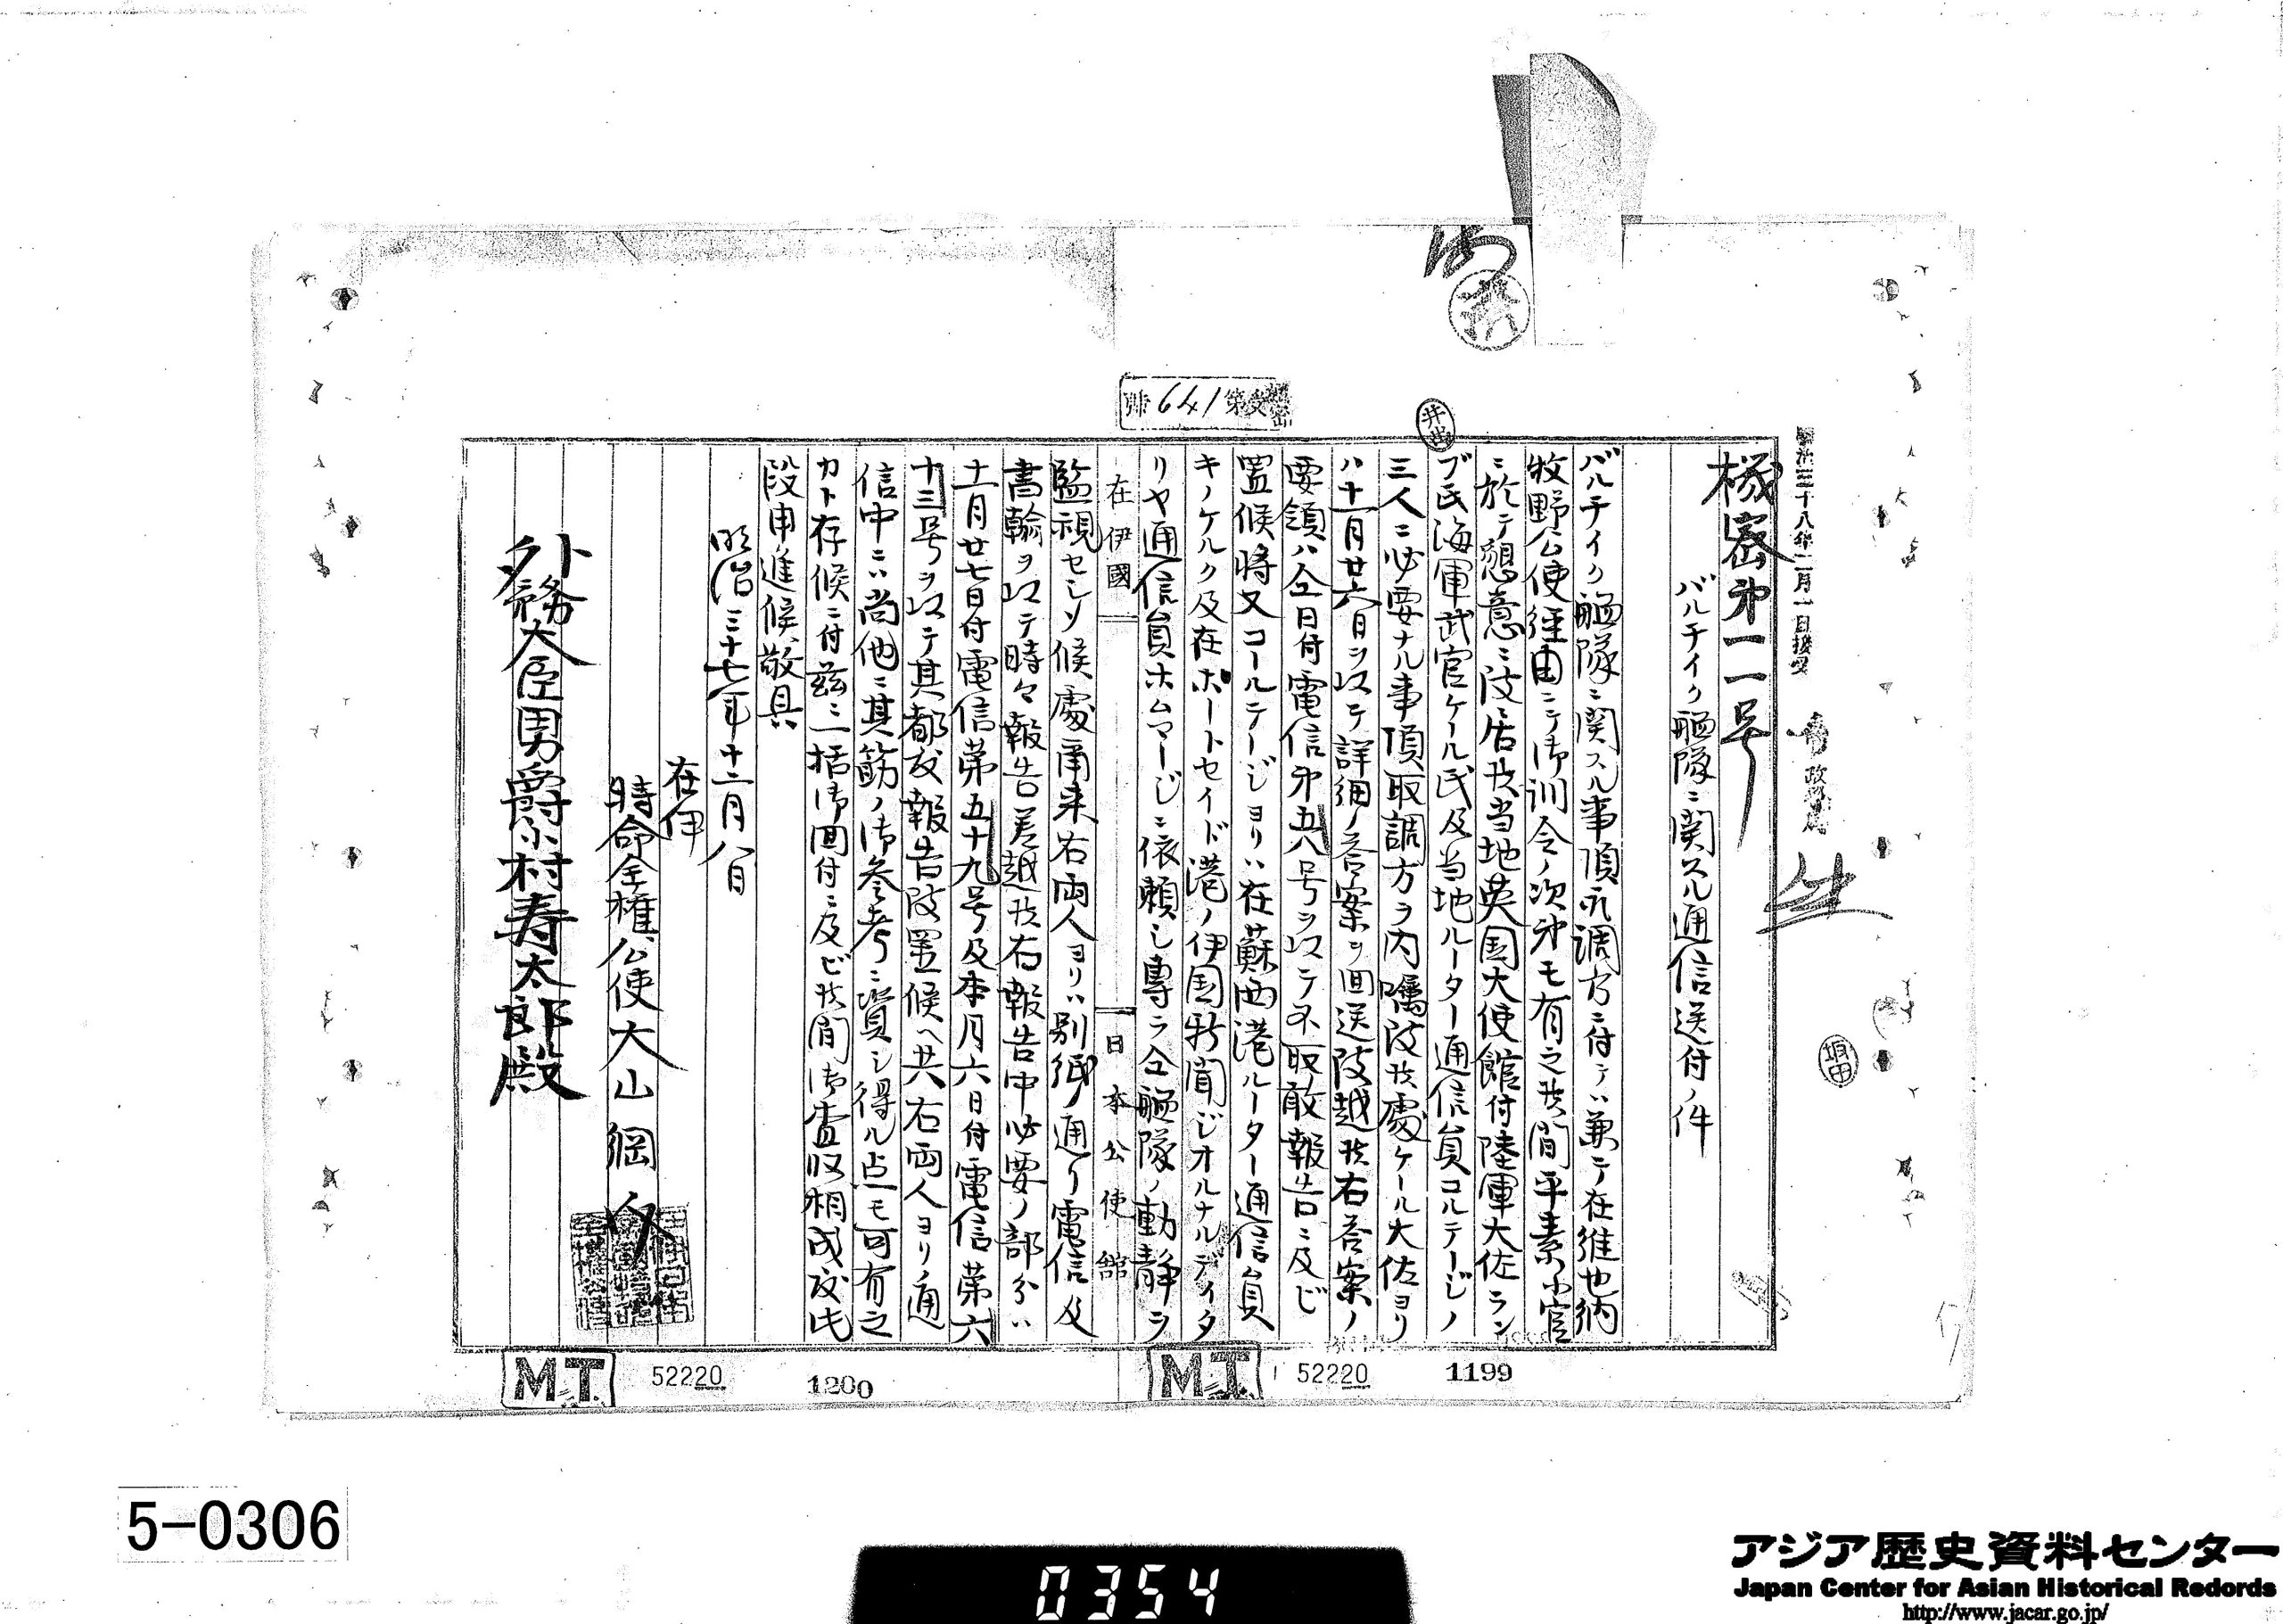 明治三十八年二月一日接受
機密第一一号
バルチイク艦隊ニ関スル通信送付ノ件
バルチイク艦隊ニ関スル事項取調方ニ付テハ兼テ在維也納
牧野公使経由ニテ御訓令ノ次第モ有之候間平素小官
ニ於テ懇意ニ致居候当地英国大使館付陸軍大佐ラン
ブ氏海軍武官ケール氏及当地ルーター通信員コルテージノ
三人ニ必要ナル事項取調方ヲ内嘱致候処ケール大佐ヨリ
ハ十一月廿六日ヲ以テ詳細ノ答案ヲ回送致越候右答案ノ
要領ハ仝日付電信第五八号ヲ以テ不取敢報告ニ及ビ
置候将又コールテージヨリハ在蘇西港ルーター通信員
キノケルク及在ポートセイド港ノ伊国新聞ジオルナルディタ
リヤ通信員ホムマージニ依頼シ専ラ仝艦隊ノ動静ヲ
在伊國
日本公使館
監視セシメ候處甫来右両人ヨリハ別紙ノ通リ電信及
書翰ヲ以テ時々報告差越候右報告中必要ノ部分ハ
十一月廿七日付電信第五十九号及本月六日付電信第六
十三号ヲ以テ其都度報告致置候ヘ共右両人ヨリ通
信中ニハ尚他ニ其筋ノ御参考ニ資シ得ル点モ可有之
カト存候ニ付茲ニ一括御回付ニ及ビ候間御査収相成度此
段申進候敬具
明治三十七年十二月八日
在伊
特命全権公使大山綱介
外務大臣男爵小村寿太郎殿
井出
坂田
第641號
MT
52220
1199
MT
52220
1200
5-0306
0354
アジア歴史資料センター
Japan Center for Asian Historical Redords
http://www.jacar.go.jp/